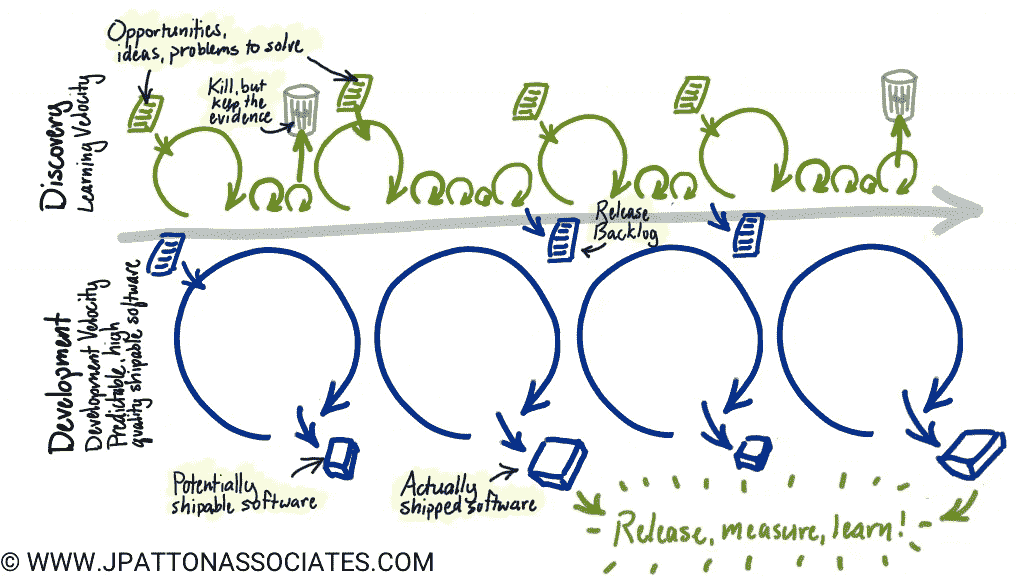 Opportunities,
ideas, problems to solve
Kill, but
keep the
evidence
Discovery
Learning Velocity
Release
Backlog
Development
Development Velocity
Predictable, high
quality shipable software
Potentially
shipable software
Actually
shipped software
Release, measure, learn!
© WWW.JPATTONASSOCIATES.COM